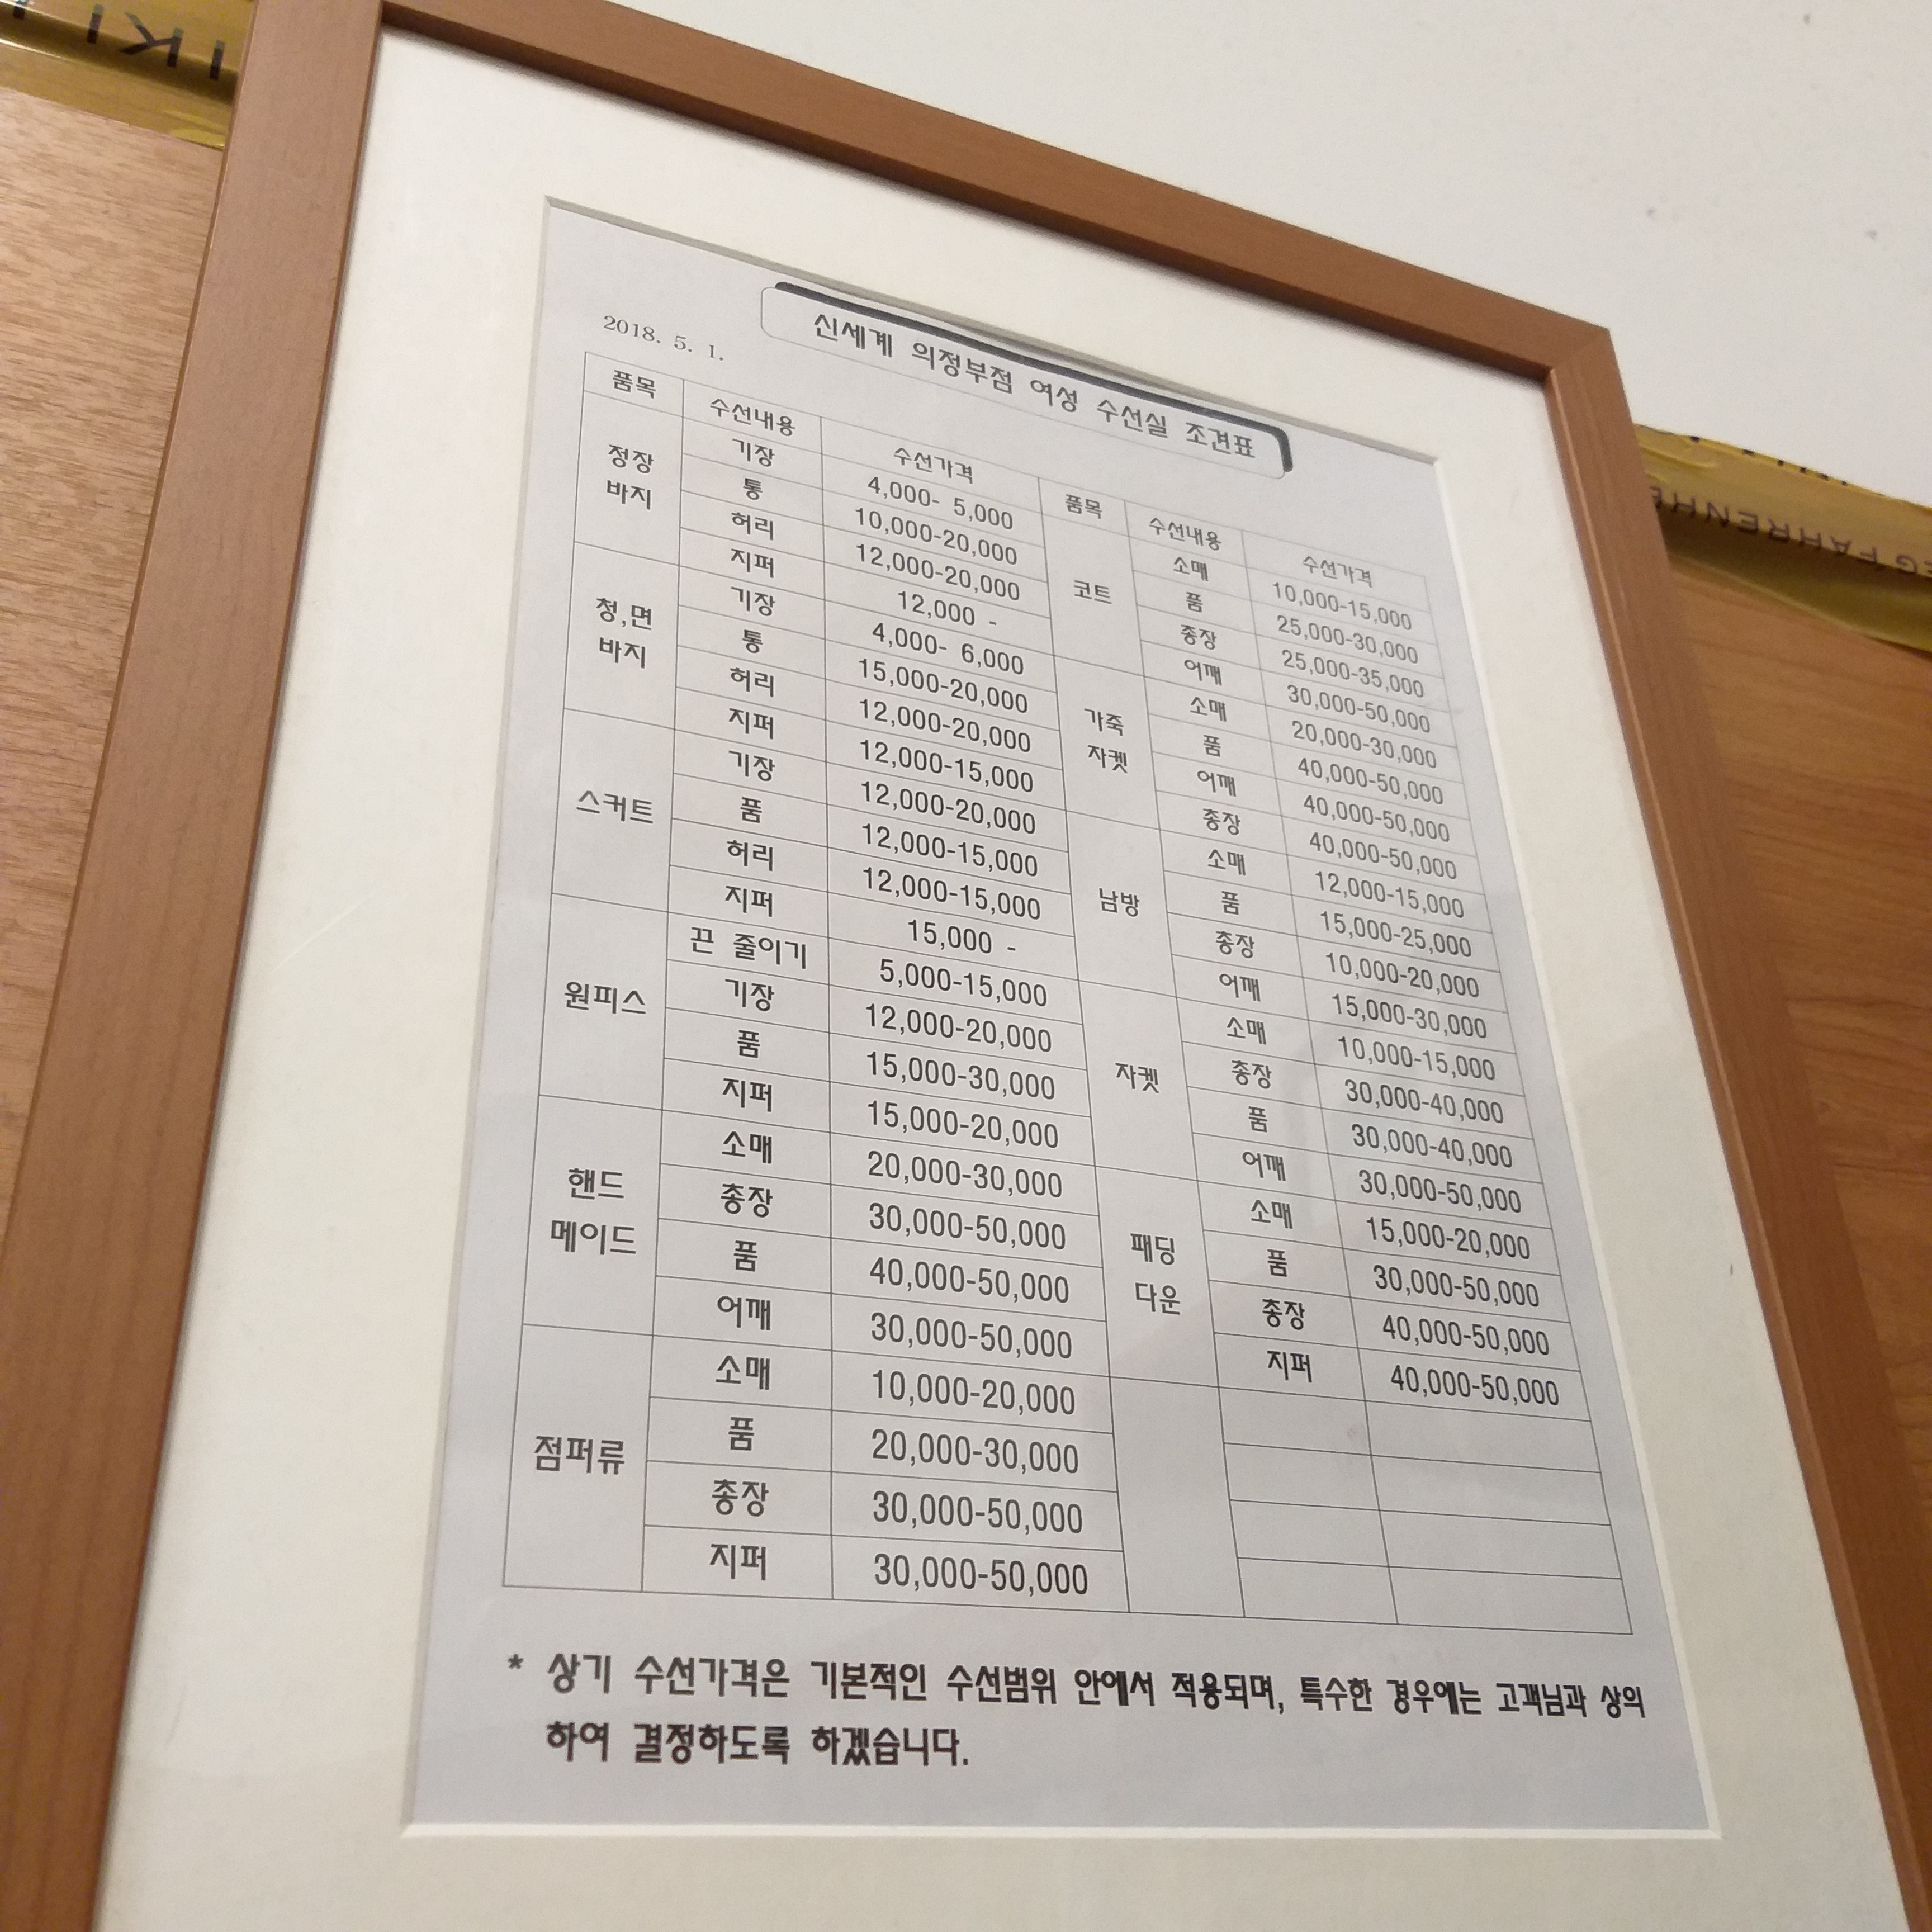 IKI
EG FAHRENHE
신세계 의정부점 여성 수선실 조견표
2018. 5. 1.
품목 수선내용 수선가격
정장 바지 기장 4,000- 5,000
통 10,000-20,000
허리 12,000-20,000
지퍼 12,000 -
청,면 바지 기장 4,000- 6,000
통 15,000-20,000
허리 12,000-20,000
지퍼 12,000-15,000
스커트 기장 12,000-20,000
품 12,000-15,000
허리 12,000-15,000
지퍼 15,000 -
원피스 끈 줄이기 5,000-15,000
기장 12,000-20,000
품 15,000-30,000
지퍼 15,000-20,000
핸드 메이드 소매 20,000-30,000
총장 30,000-50,000
품 40,000-50,000
어깨 30,000-50,000
점퍼류 소매 10,000-20,000
품 20,000-30,000
총장 30,000-50,000
지퍼 30,000-50,000
품목 수선내용 수선가격
코트 소매 10,000-15,000
품 25,000-30,000
총장 25,000-35,000
어깨 30,000-50,000
가죽 자켓 소매 20,000-30,000
품 40,000-50,000
어깨 40,000-50,000
총장 40,000-50,000
남방 소매 12,000-15,000
품 15,000-25,000
총장 10,000-20,000
어깨 15,000-30,000
자켓 소매 10,000-15,000
총장 30,000-40,000
품 30,000-40,000
어깨 30,000-50,000
패딩 다운 소매 15,000-20,000
품 30,000-50,000
총장 40,000-50,000
지퍼 40,000-50,000
* 상기 수선가격은 기본적인 수선범위 안에서 적용되며, 특수한 경우에는 고객님과 상의
하여 결정하도록 하겠습니다.